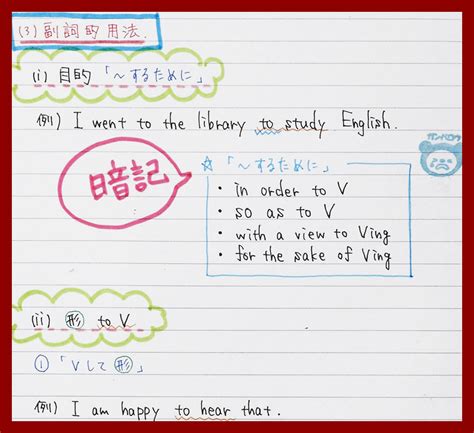 (3) 副詞的用法.
(i) 目的 「～するために」
例) I went to the library to study English.
ガンドロウ
暗記
☆ 「～するために」
・ in order to V
・ so as to V
・ with a view to Ving
・ for the sake of Ving
(ii) 形 to V
① 「Vして形」
例) I am happy to hear that.